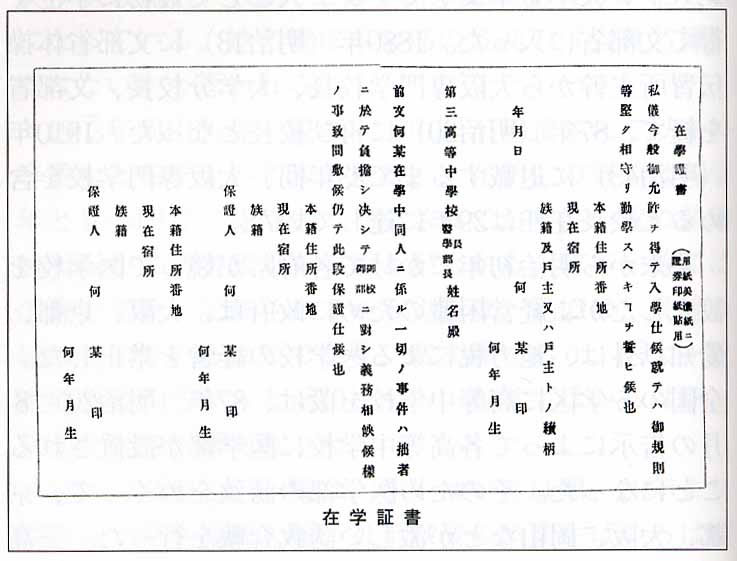 在學證書（用紙美濃紙ニ證券印紙貼用）
私儀今般御允許ヲ得テ入學仕候就テハ御規則
等堅ク相守リ勤學スヘキヿヲ誓ヒ候也
本籍住所番地
現在宿所
族籍及戸主又ハ戸主トノ續柄
年月日 何 某 印
何年月生
第三高等中學校長醫學部長姓名殿
前文何某在學中同人ニ係ル一切ノ事件ハ拙者
ニ於テ負擔シ決シテ御校御部ニ對シ義務相缺候樣
ノ事間敷候仍テ此段保證仕候也
本籍住所番地
現在宿所
族籍
保證人 何 某 印
何年月生
本籍住所番地
現在宿所
族籍
保證人 何 某 印
何年月生
在学証書